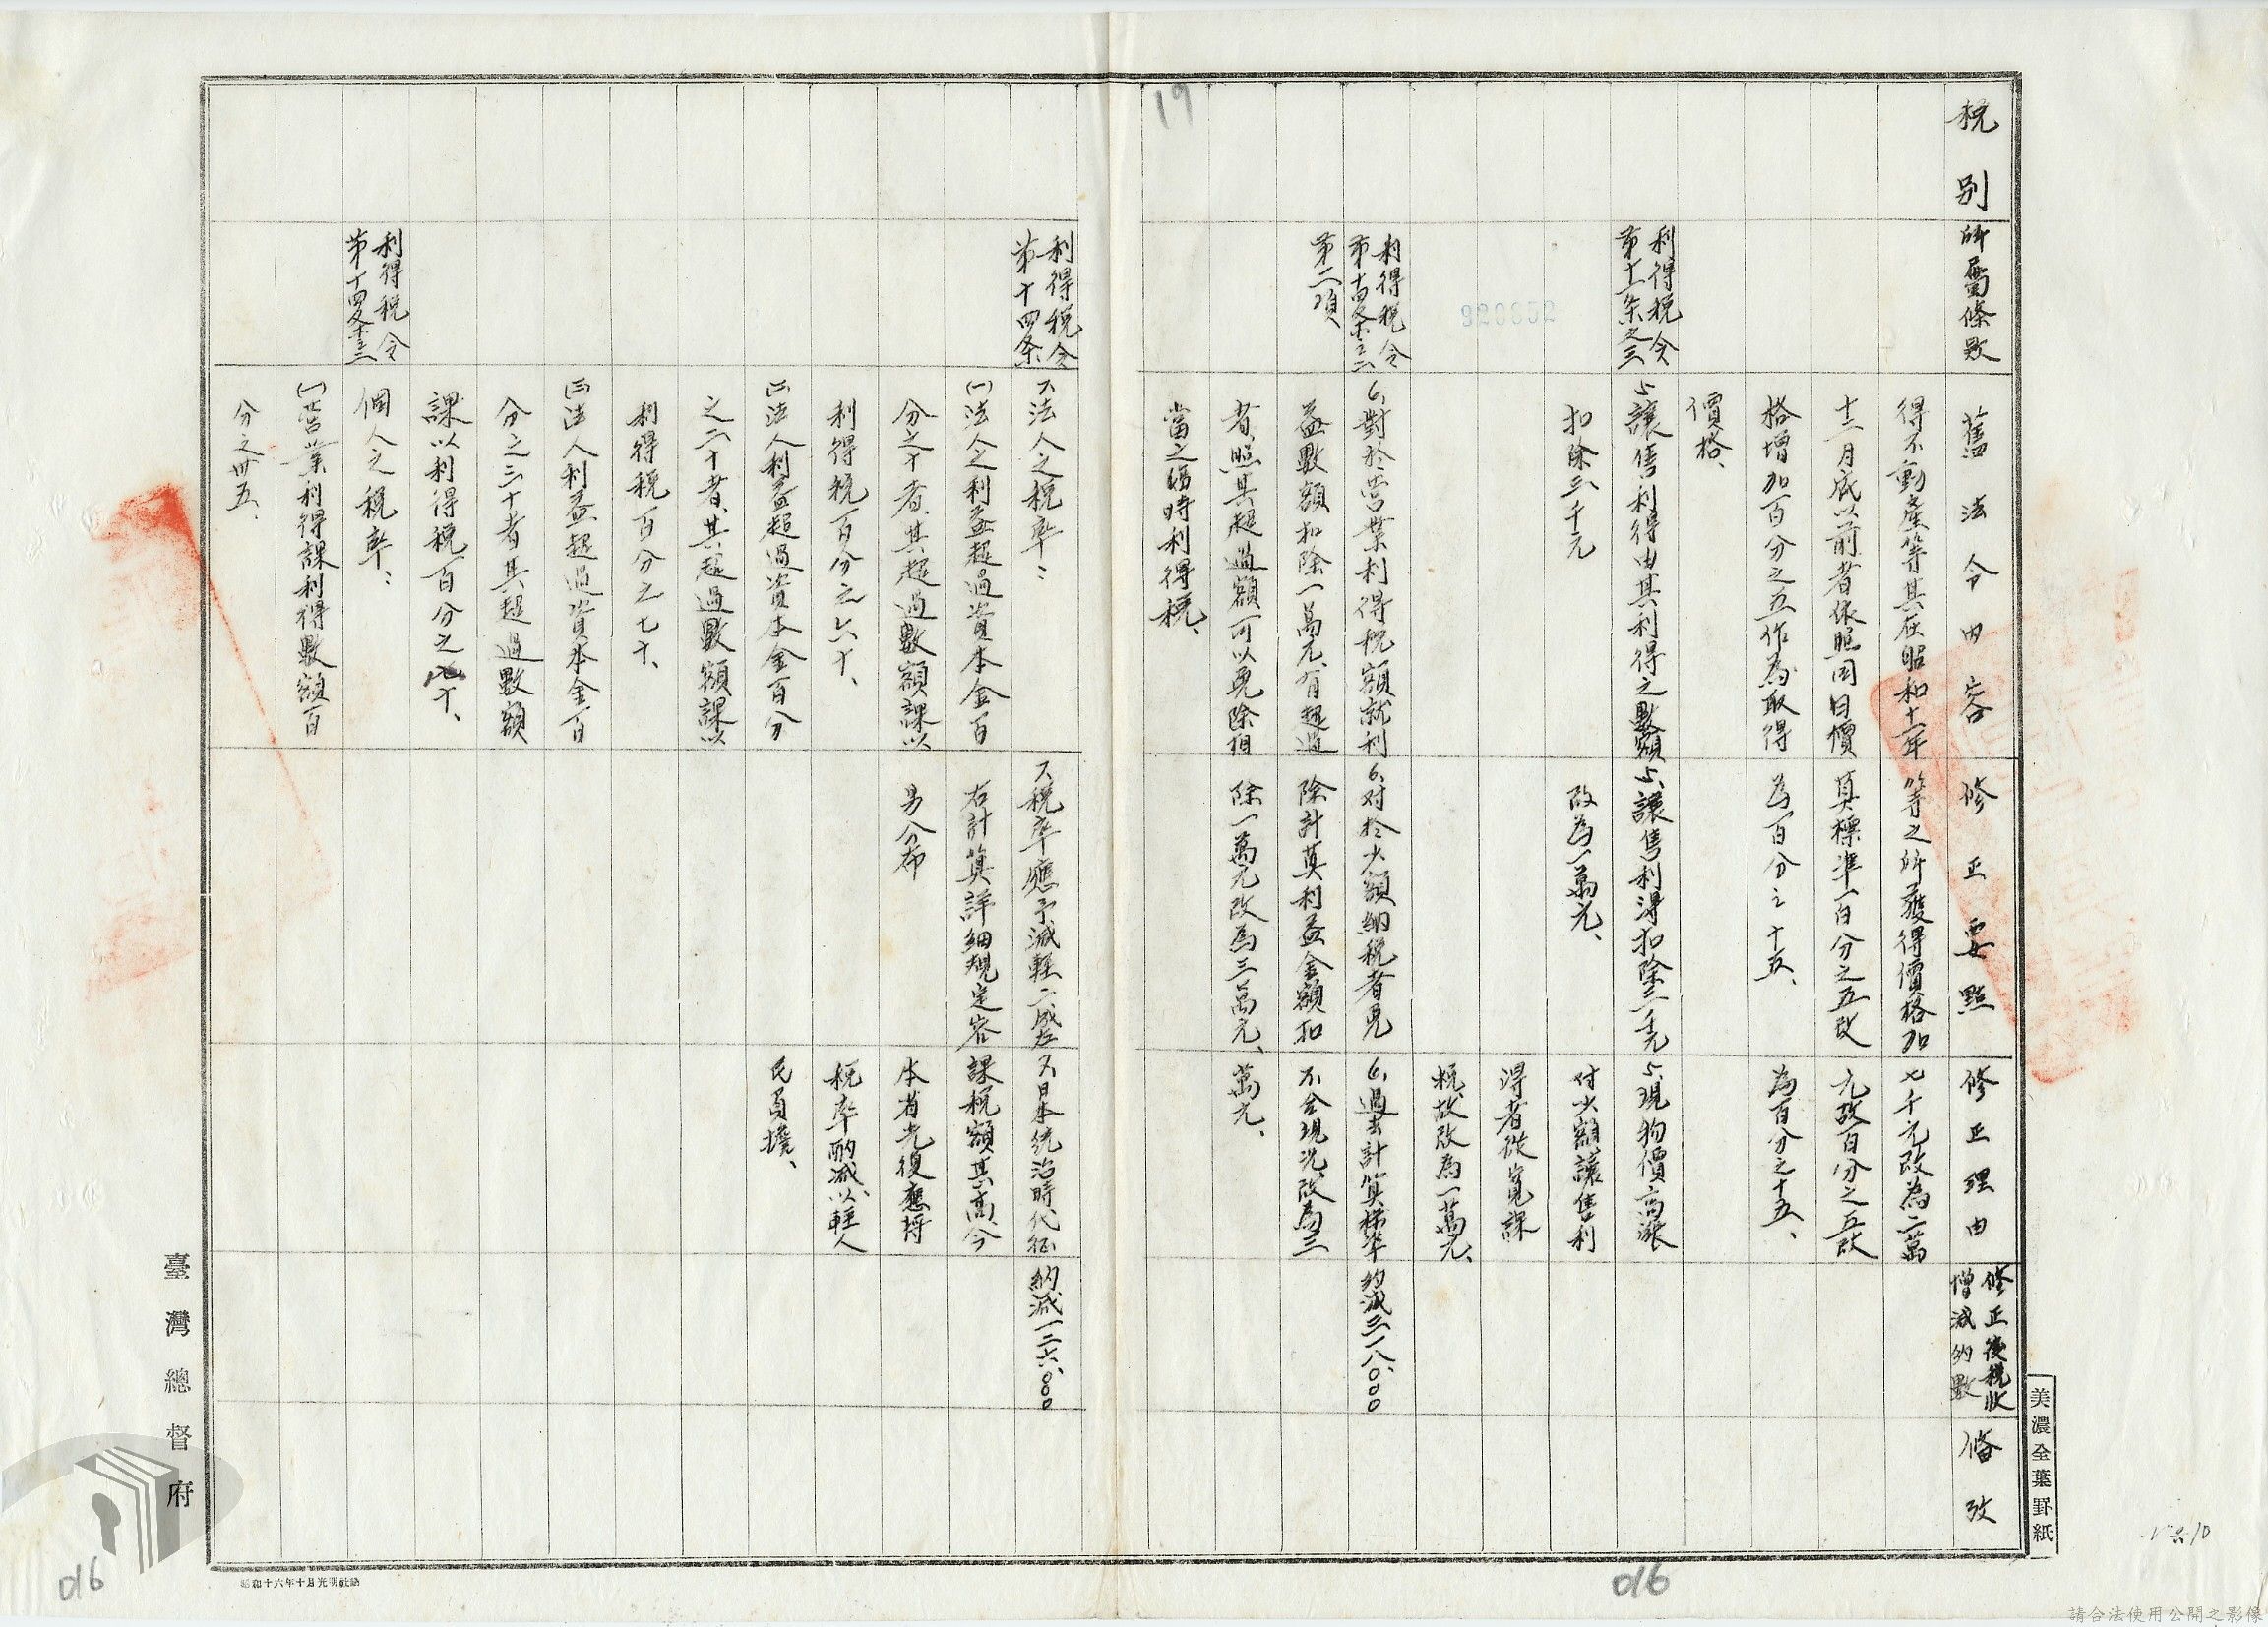 稅別
所屬條數
舊法令內容
修正要點
修正理由
修正後稅收
增減約數
備攷
得不動產等其在昭和十一年
十二月底以前者依照同日價
格增加百分之五作為取得
價格、
等之所獲得價格加
算標準一百分之五改
為一百分之十五、
七千元改為二萬
元故百分之五改
為百分之十五、
利得稅令
第十一条之三
5、讓售利得由其利得之數額
扣除三千元
5、讓售利得扣除三千元
改為一萬元、
5、現物價高漲
対少額讓售利
得者從寬課
稅、故改為一萬元、
利得稅令
第二項、
6、對於營業利得稅額就利
益數額扣除一萬元、有超過
者、照其超過額可以免除相
當之臨時利得稅、
6、対於少額納稅者免
除計算利益金額扣
除一萬元改為三萬元、
6、過去計算標準
不合現况、改為三
萬元、
約減三一八、〇〇〇
19
利得稅令
第十四条、
7、法人之稅率：
(一)法人之利益超過資本金百
分之十者、其超過數額課以
利得稅百分之六十、
(二)法人利益超過資本金百分
之二十者、其超過數額課以
利得稅百分之七十、
(三)法人利益超過資本金百
分之三十者其超過數額
課以利得稅百分之八十、
7、稅率應予減輕二成左
右計算詳細規定容
另公布
7、日本統治時代征
課稅額甚高、今
本省光復應將
稅率酌減、以輕人
民負擔、
約減一二六、〇〇〇
利得稅令
個人之稅率：
(一)營業利得課利得數額百
分之卅五、
臺灣總督府
美濃全葉罫紙
昭和十六年十月光明社納
016
016
請合法使用公開之影像